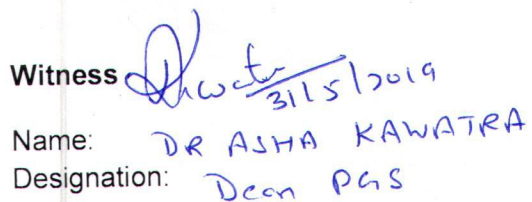 Witness
31/5/2019
Name: DR ASHA KAWATRA
Designation: Dean PGS